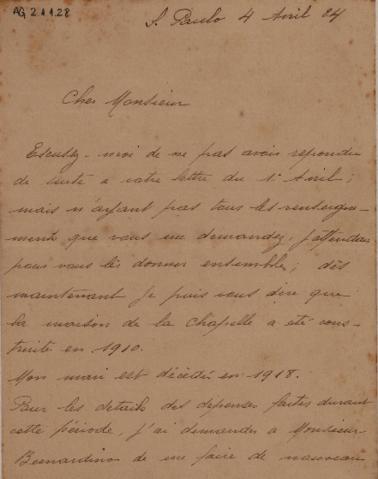 AG 2.1.1.28
S. Paulo 4 Avril 24
Cher Monsieur
Excusez-moi de ne pas avoir repondu
de suite a votre lettre du 1r Avril;
mais n'ayant pas tous les renseigne-
ments que vous me demandez, j'attendais
pour vous les donner ensemble; dès
maintenant je puis vous dire que
la maison de la Chapelle a été cons-
truite en 1910.
Mon mari est décédé en 1918.
Pour les details des depenses faites durant
cette période, j'ai demandé a Monsieur
Bernardino de me faire de nouveau